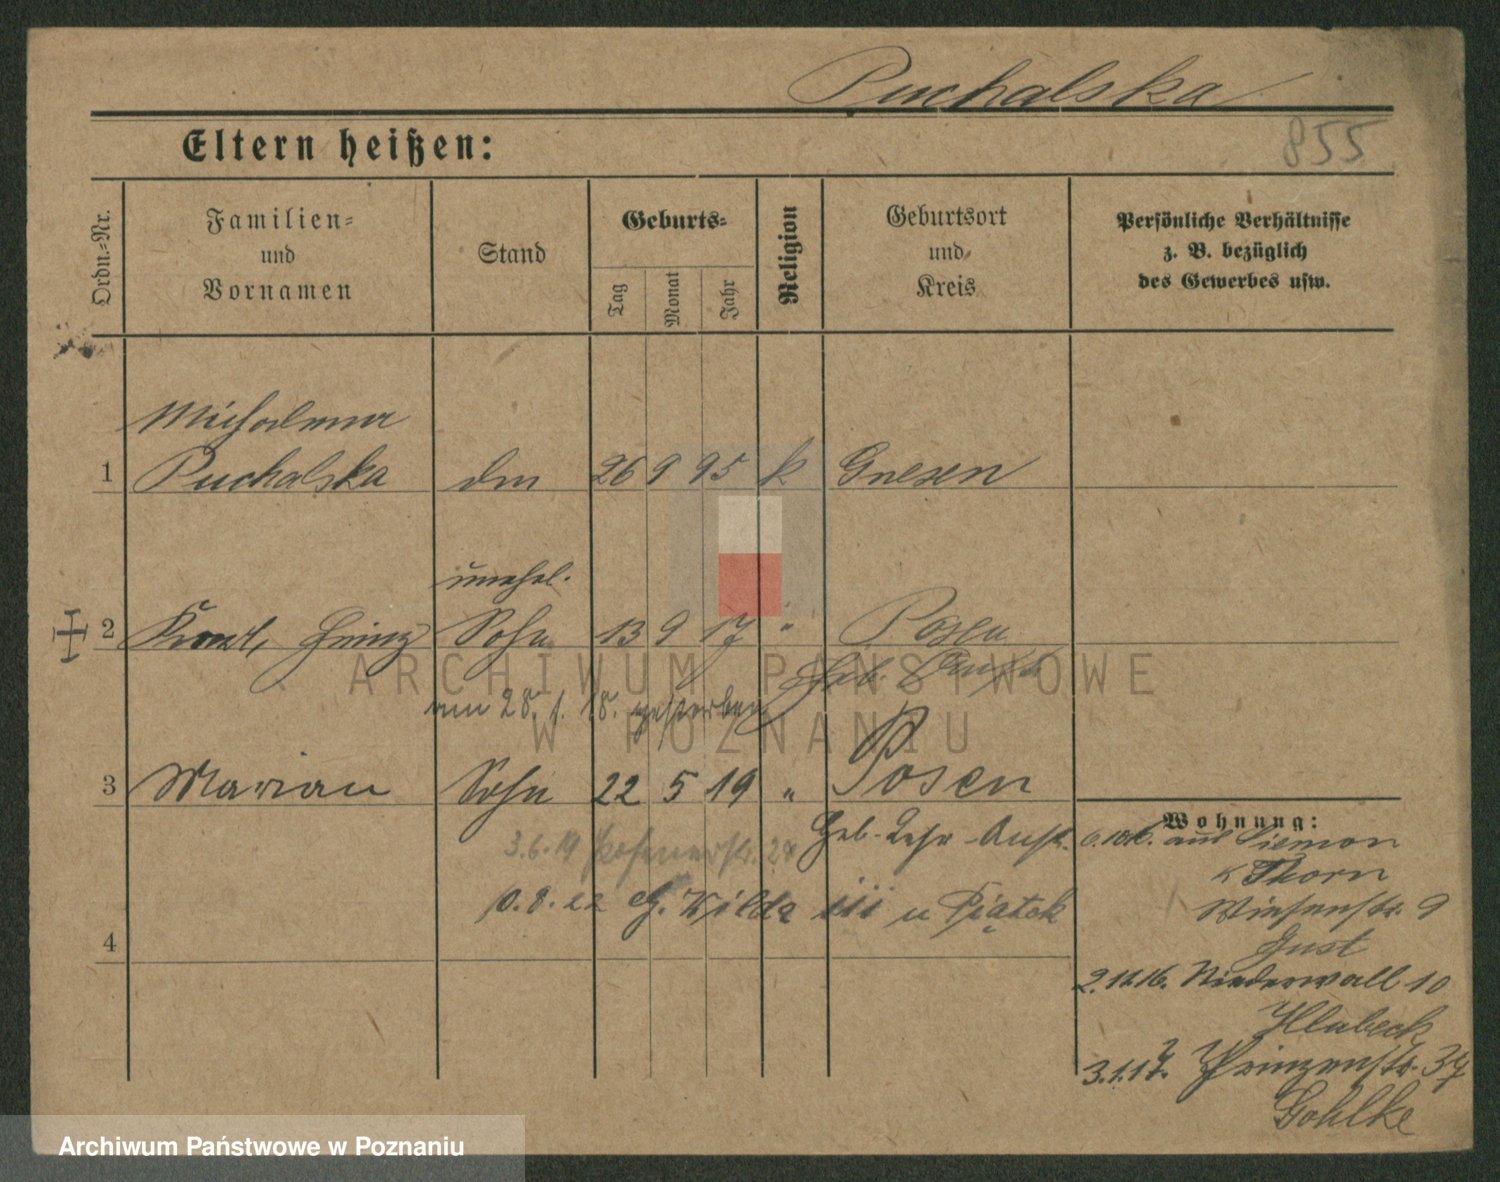 Puchalska
855
Eltern heißen:
Ordn.-Nr.
Familien-
und
Vornamen
Stand
Geburts-
Tag
Monat
Jahr
Religion
Geburtsort
und
Kreis
Persönliche Verhältnisse
z. B. bezüglich
des Gewerbes usw.
Michalina
1 Puchalska 26 9 95 k Gnesen
unehel.
2 Heinz Sohn 13 9 17 " Posen
am 28. 1. 18. gestorben
3 Marian Sohn 22 5 19 " Posen
3.6.19 Posenerstr. 28 Geb. Lehr Anst.
10.8.22 Wilda III u Piątek
4
Wohnung:
aus Siemon
Thorn
Wiesenstr. 9
Just
2.11.16. Niederwall 10
Hlubeck
3.1.17. Prinzenstr. 37
Gohlke
ARCHIWUM PAŃSTWOWE
W POZNANIU
Archiwum Państwowe w Poznaniu